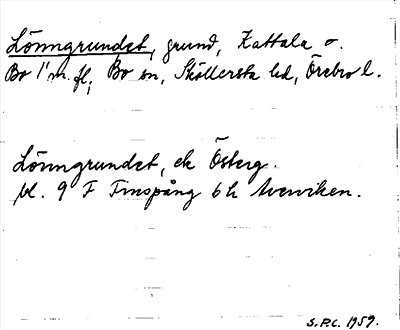 Lönngrundet, grund, Kattala o.
Bo 1 m. fl., Bo sn, Sköllersta hd, Örebro l.
Lönngrundet, ek Österg.
bl. 9 F Finspång 6 h Avernviken.
S.P.C. 1959.